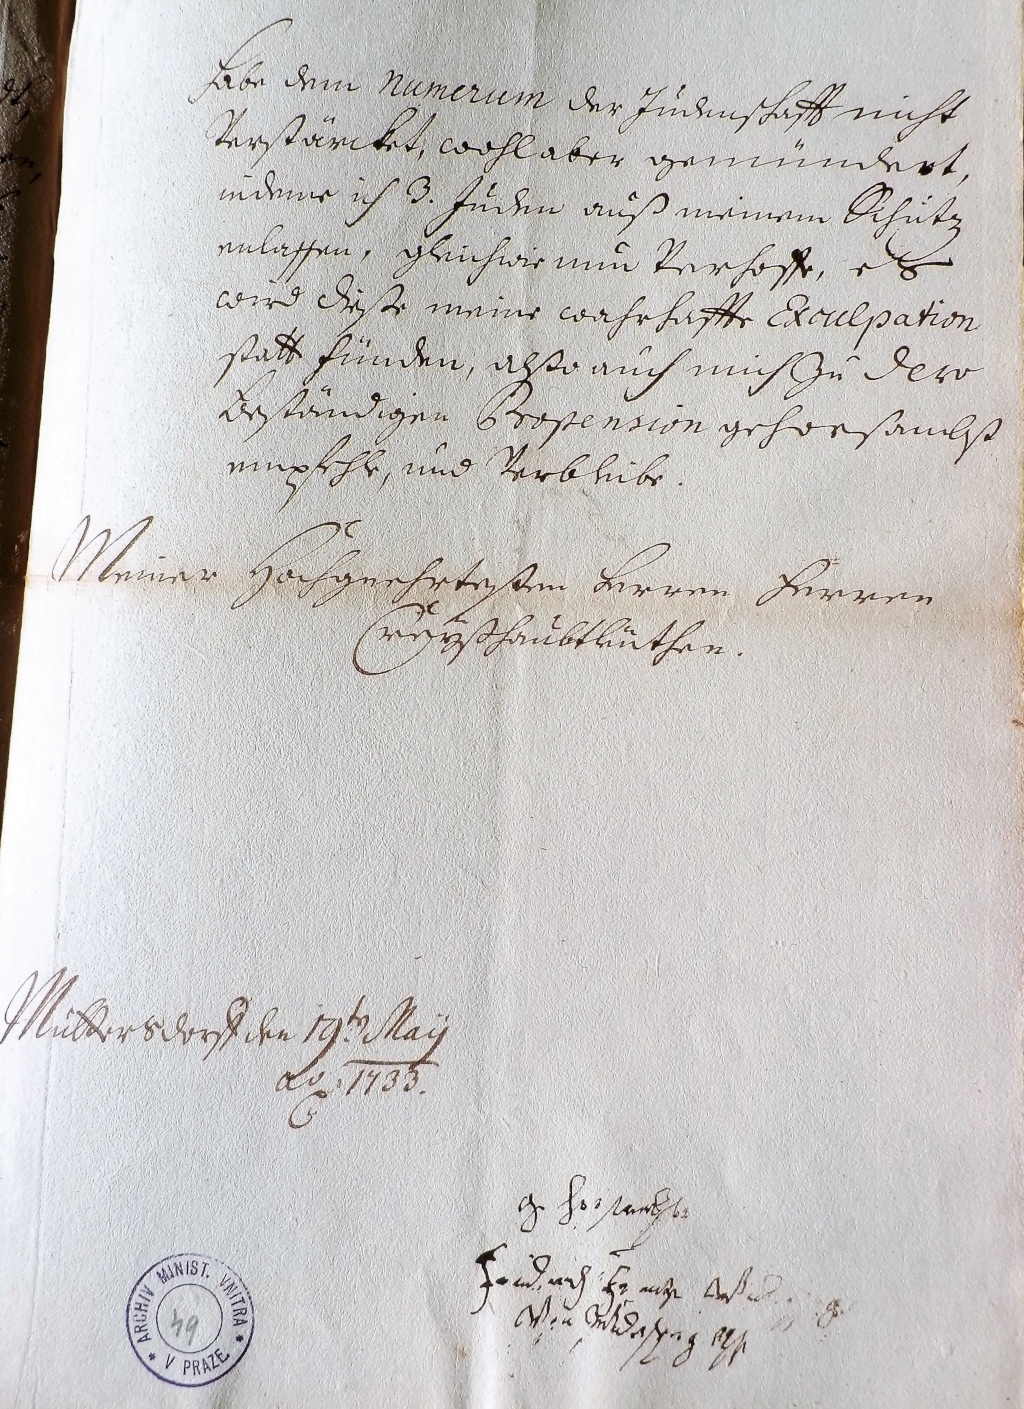 habe dem numerum der Judenschafft nicht
Verstärcket, wohl aber gemündert,
indeme ich 3. Juden auß meinem Schutz
enlassen, gleichwie nun Verhoffe, es
wird dieße meine wahrhaffte Exculpation
statt fünden, alßo auch mich zu dero
beständigen Propension gehorsambst
empfehle, und Verbleibe.
Meiner Hochgeehrtesten Herren Herren
Creÿßhaubtleuthen.
Muttersdorff den 19t May
ao: 1733.
gehorsambster
Friedrich
Von
ARCHIV MINIST. VNITRA
V PRAZE
49